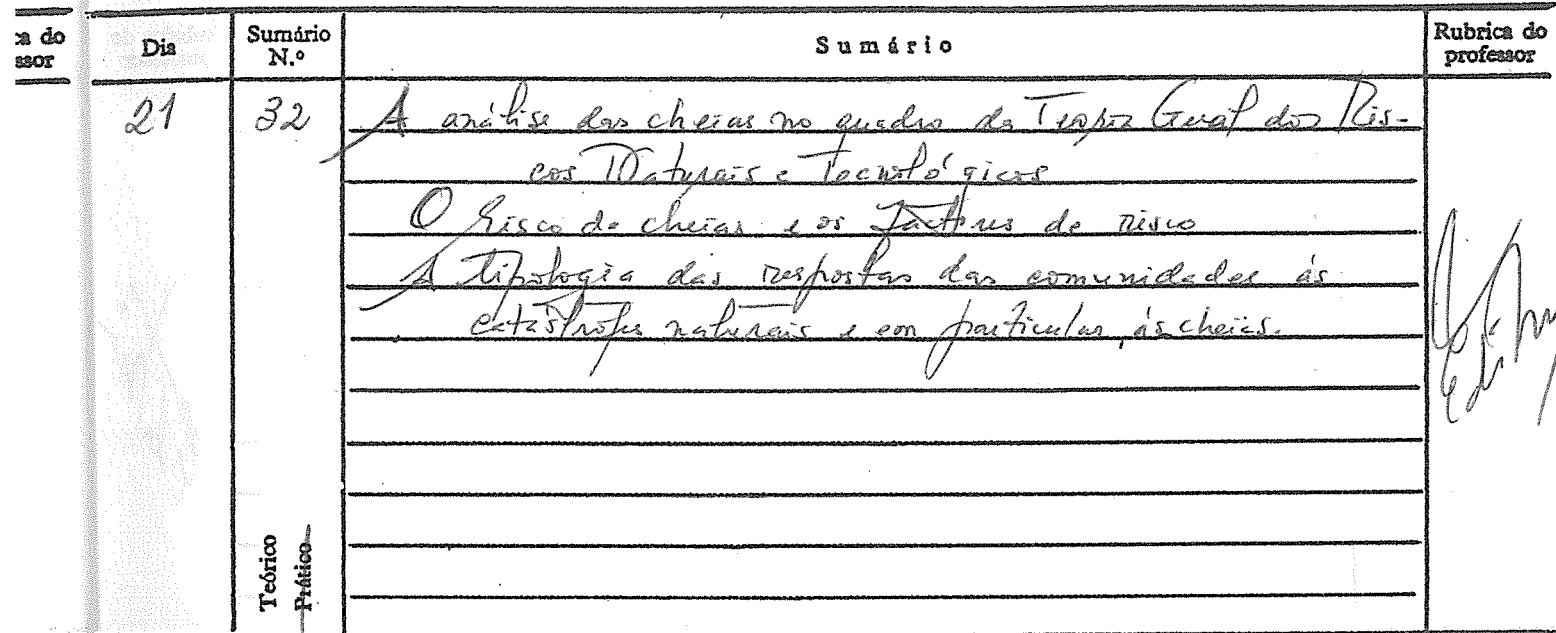 ca do
ssor
Dia
Sumário
N.º
Sumário
Rubrica do
professor
21
32
A análise das cheias no quadro da Teoria Geral dos Ris-
cos Naturais e Tecnológicos
O risco de cheias e os factores de risco
A tipologia das respostas das comunidades ás
catástrofes naturais e em particular, ás cheias.
Teórico
Prático